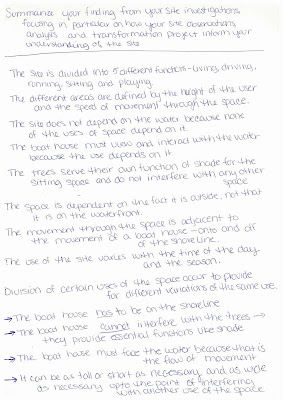 Summarize your finding from your site investigations,
focusing in particular on how your site observations,
analysis and transformation project inform your
understanding of the site
The site is divided into 5 different functions - living, driving,
running, sitting and playing.
The different areas are defined by the height of the user
and the speed of movement through the space.
The site does not depend on the water because none
of the uses of space depend on it.
The boat house must use and interact with the water
because the use depends on it.
The trees serve their own function of shade for the
sitting space and do not interfere with any other
space
The space is dependent on the fact it is outside, not that
it is on the waterfront.
The movement through the space is adjacent to
the movement of a boat house - onto and off
of the shoreline.
The use of the site varies with the time of the day
and the season.
Division of certain uses of the space occur to provide
for different variations of the same use.
→ The boat house has to be on the shoreline
→ The boat house cannot interfere with the trees →
they provide essential functions like shade
→ The boat house must face the water because that is
the flow of movement
→ It can be as tall or short as necessary and as wide
as necessary upto the point of interfering
with another use of the space